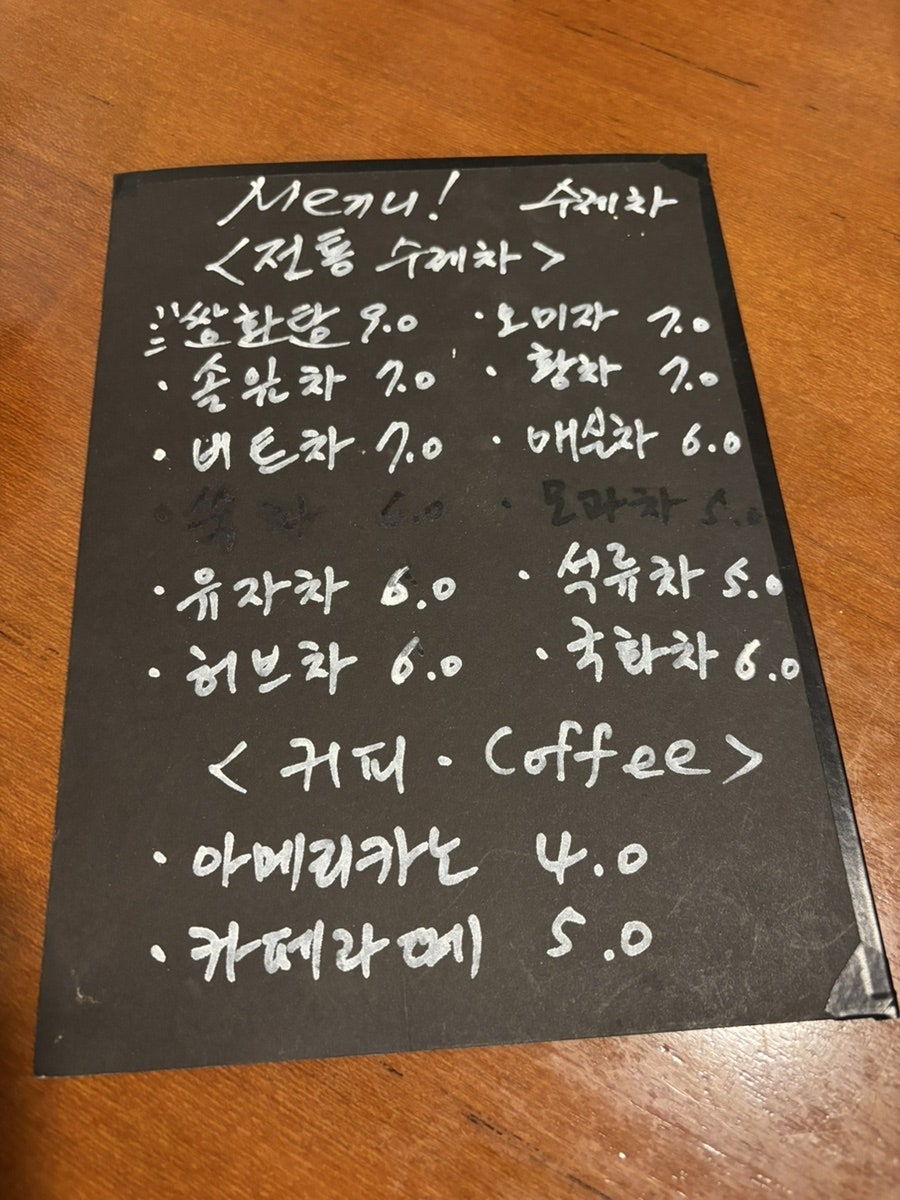 Menu! 수제차
<전통 수제차>
쌍화탕 9.0 · 오미자 7.0
· 솔잎차 7.0 · 황차 7.0
· 비트차 7.0 · 매실차 6.0
· 쑥차 6.0 · 모과차 5.0
· 유자차 6.0 · 석류차 5.0
· 허브차 6.0 · 국화차 6.0
< 커피 · Coffee >
· 아메리카노 4.0
· 카페라떼 5.0